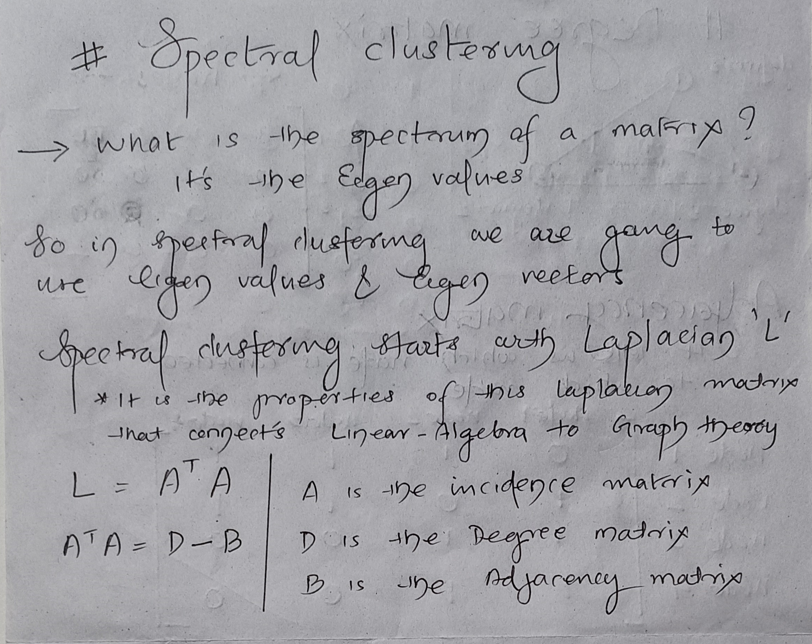 # Spectral clustering
→ what is the spectrum of a matrix?
It's the Eigen values
So in spectral clustering we are going to
use eigen values & Eigen vectors
Spectral clustering starts with Laplacian 'L'
* It is the properties of this laplacian matrix
that connect's Linear-Algebra to Graph theory
L = AᵀA | A is the incidence matrix
AᵀA = D - B | D is the Degree matrix
B is the Adjacency matrix